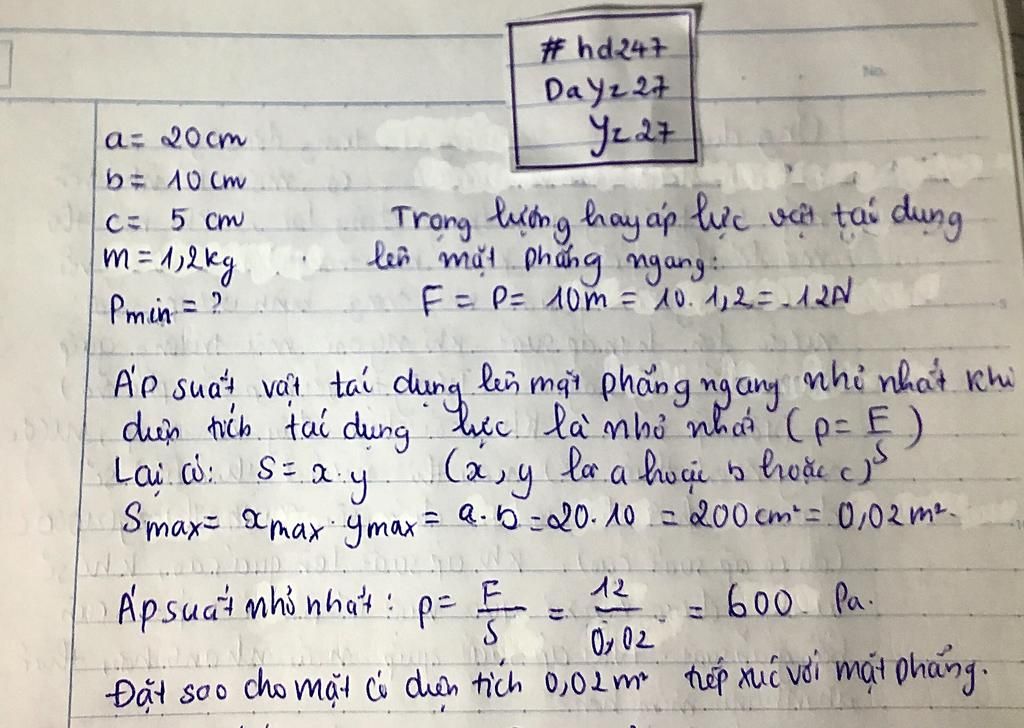 # hd247
DaYz27
Yz27
No.
a = 20cm
b = 10cm
c = 5 cm
Trọng lượng hay áp lực vật tác dụng
m = 1,2kg
lên mặt phẳng ngang:
Pmin = ?
F = P = 10m = 10. 1,2 = 12N
Áp suất vật tác dụng lên mặt phẳng ngang nhỏ nhất khi
diện tích tác dụng lực là nhỏ nhất (p = F/S)
Lại có: S = x.y (x, y là a hoặc b hoặc c)
Smax = xmax. ymax = a.b = 20.10 = 200cm² = 0,02m².
Áp suất nhỏ nhất: p = F/S = 12/0,02 = 600 Pa.
Đặt sao cho mặt có diện tích 0,02m² tiếp xúc với mặt phẳng.